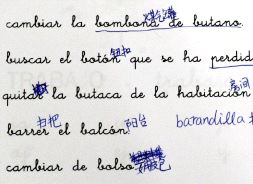 煤气罐
cambiar la bombona de butano.
钮扣
buscar el botón que se ha perdid
房间
quitar la butaca de la habitación
扫把 阳台
barrer el balcón. barandilla
cambiar de bolso